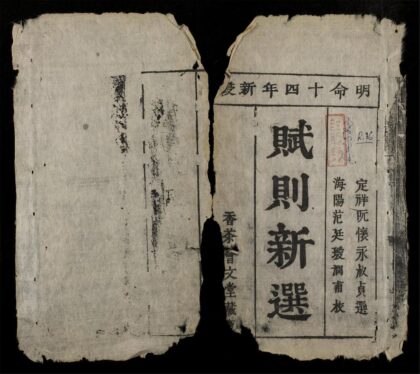 明命十四年新
定祥阮懷永叔貞選
海陽范廷瑗潤甫校
賦則新選
香茶會文堂藏